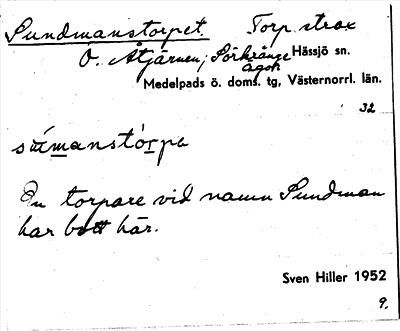 Sundmanstorpet. Torp strax
Ö. Åtjärnen, Sörkrånge Hässjö sn.
ägor
Medelpads ö. doms. tg, Västernorrl. län.
32
súmanstórpa
En torpare vid namn Sundman
har bott här.
Sven Hiller 1952
9.